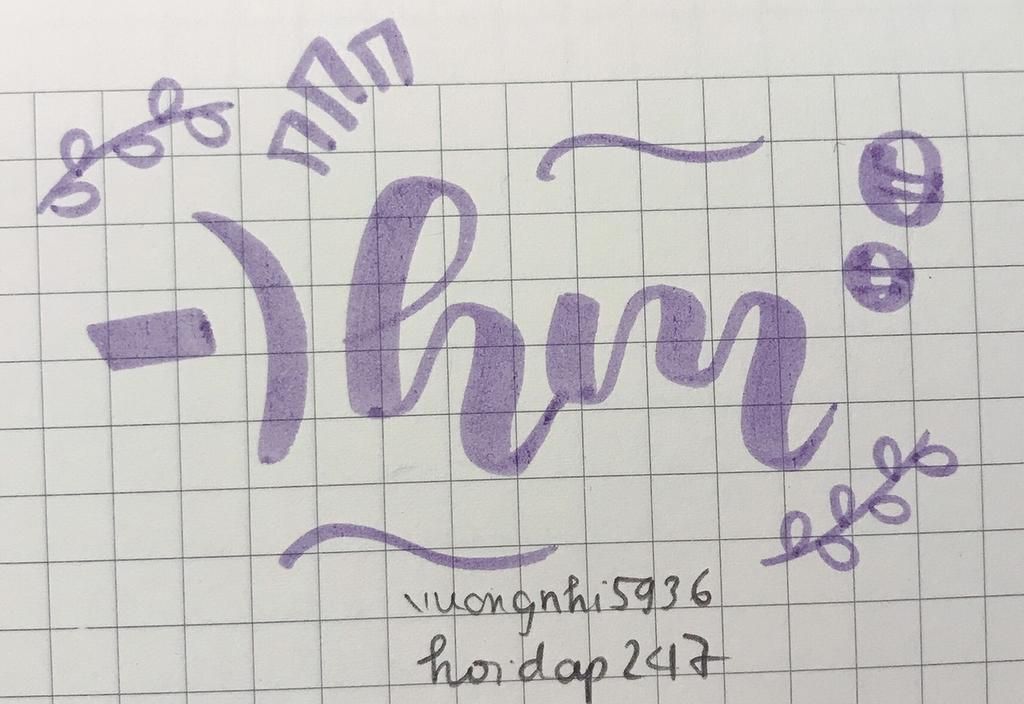 -)hm
vuongnhi5936
hoidap247